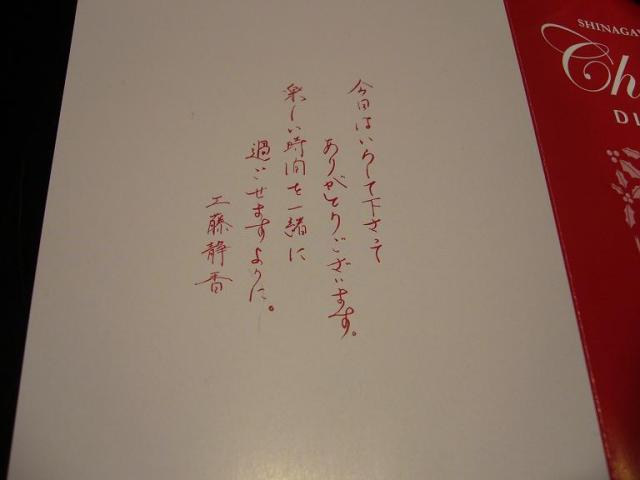 今日はいらして下さって
ありがとうございます。
楽しい時間を一緒に
過ごせますように。
工藤静香
SHINAGAW
Ch
DI